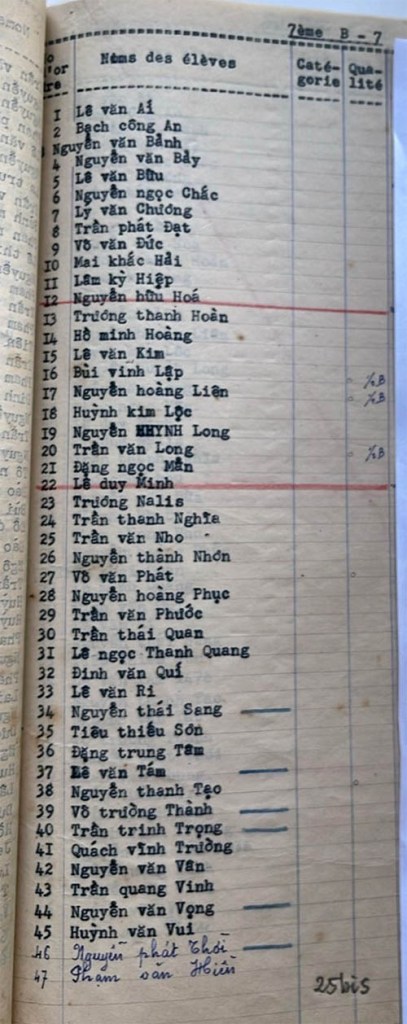 7ème B - 7
No d'or dre Noms des élèves Caté- gorie Qua- lité
I Lê văn Ái
2 Bạch công An
Nguyễn văn Bảnh
4 Nguyễn văn Bảy
5 Lê văn Bữu
6 Nguyễn ngọc Chắc
7 Lý văn Chương
8 Trần phát Đạt
9 Võ văn Đức
IO Mai khắc Hải
II Lâm kỳ Hiệp
I2 Nguyễn hữu Hoá
I3 Trương thanh Hoàn
I4 Hồ minh Hoàng
I5 Lê văn Kim
I6 Bùi vĩnh Lập
I7 Nguyễn hoàng Liện
I8 Huỳnh kim Lộc
I9 Nguyễn HHYNH Long
20 Trần văn Long
2I Đặng ngọc Mẫn
22 Lê duy Minh
23 Trương Nalis
24 Trần thanh Nghĩa
25 Trần văn Nho
26 Nguyễn thành Nhơn
27 Võ văn Phát
28 Nguyễn hoàng Phục
29 Trần văn Phước
30 Trần thái Quan
3I Lê ngọc Thanh Quang
32 Đinh văn Quí
33 Lê văn Ri
34 Nguyễn thái Sang
35 Tiêu thiếu Sơn
36 Đặng trung Tâm
37 Lê văn Tám
38 Nguyễn thanh Tạo
39 Võ trường Thành
40 Trần trinh Trọng
4I Quách vĩnh Trường
42 Nguyễn văn Vân
43 Trần quang Vinh
44 Nguyễn văn Vọng
45 Huỳnh văn Vui
46 Nguyễn phát Thới
47 Phạm văn Hiền
25bis